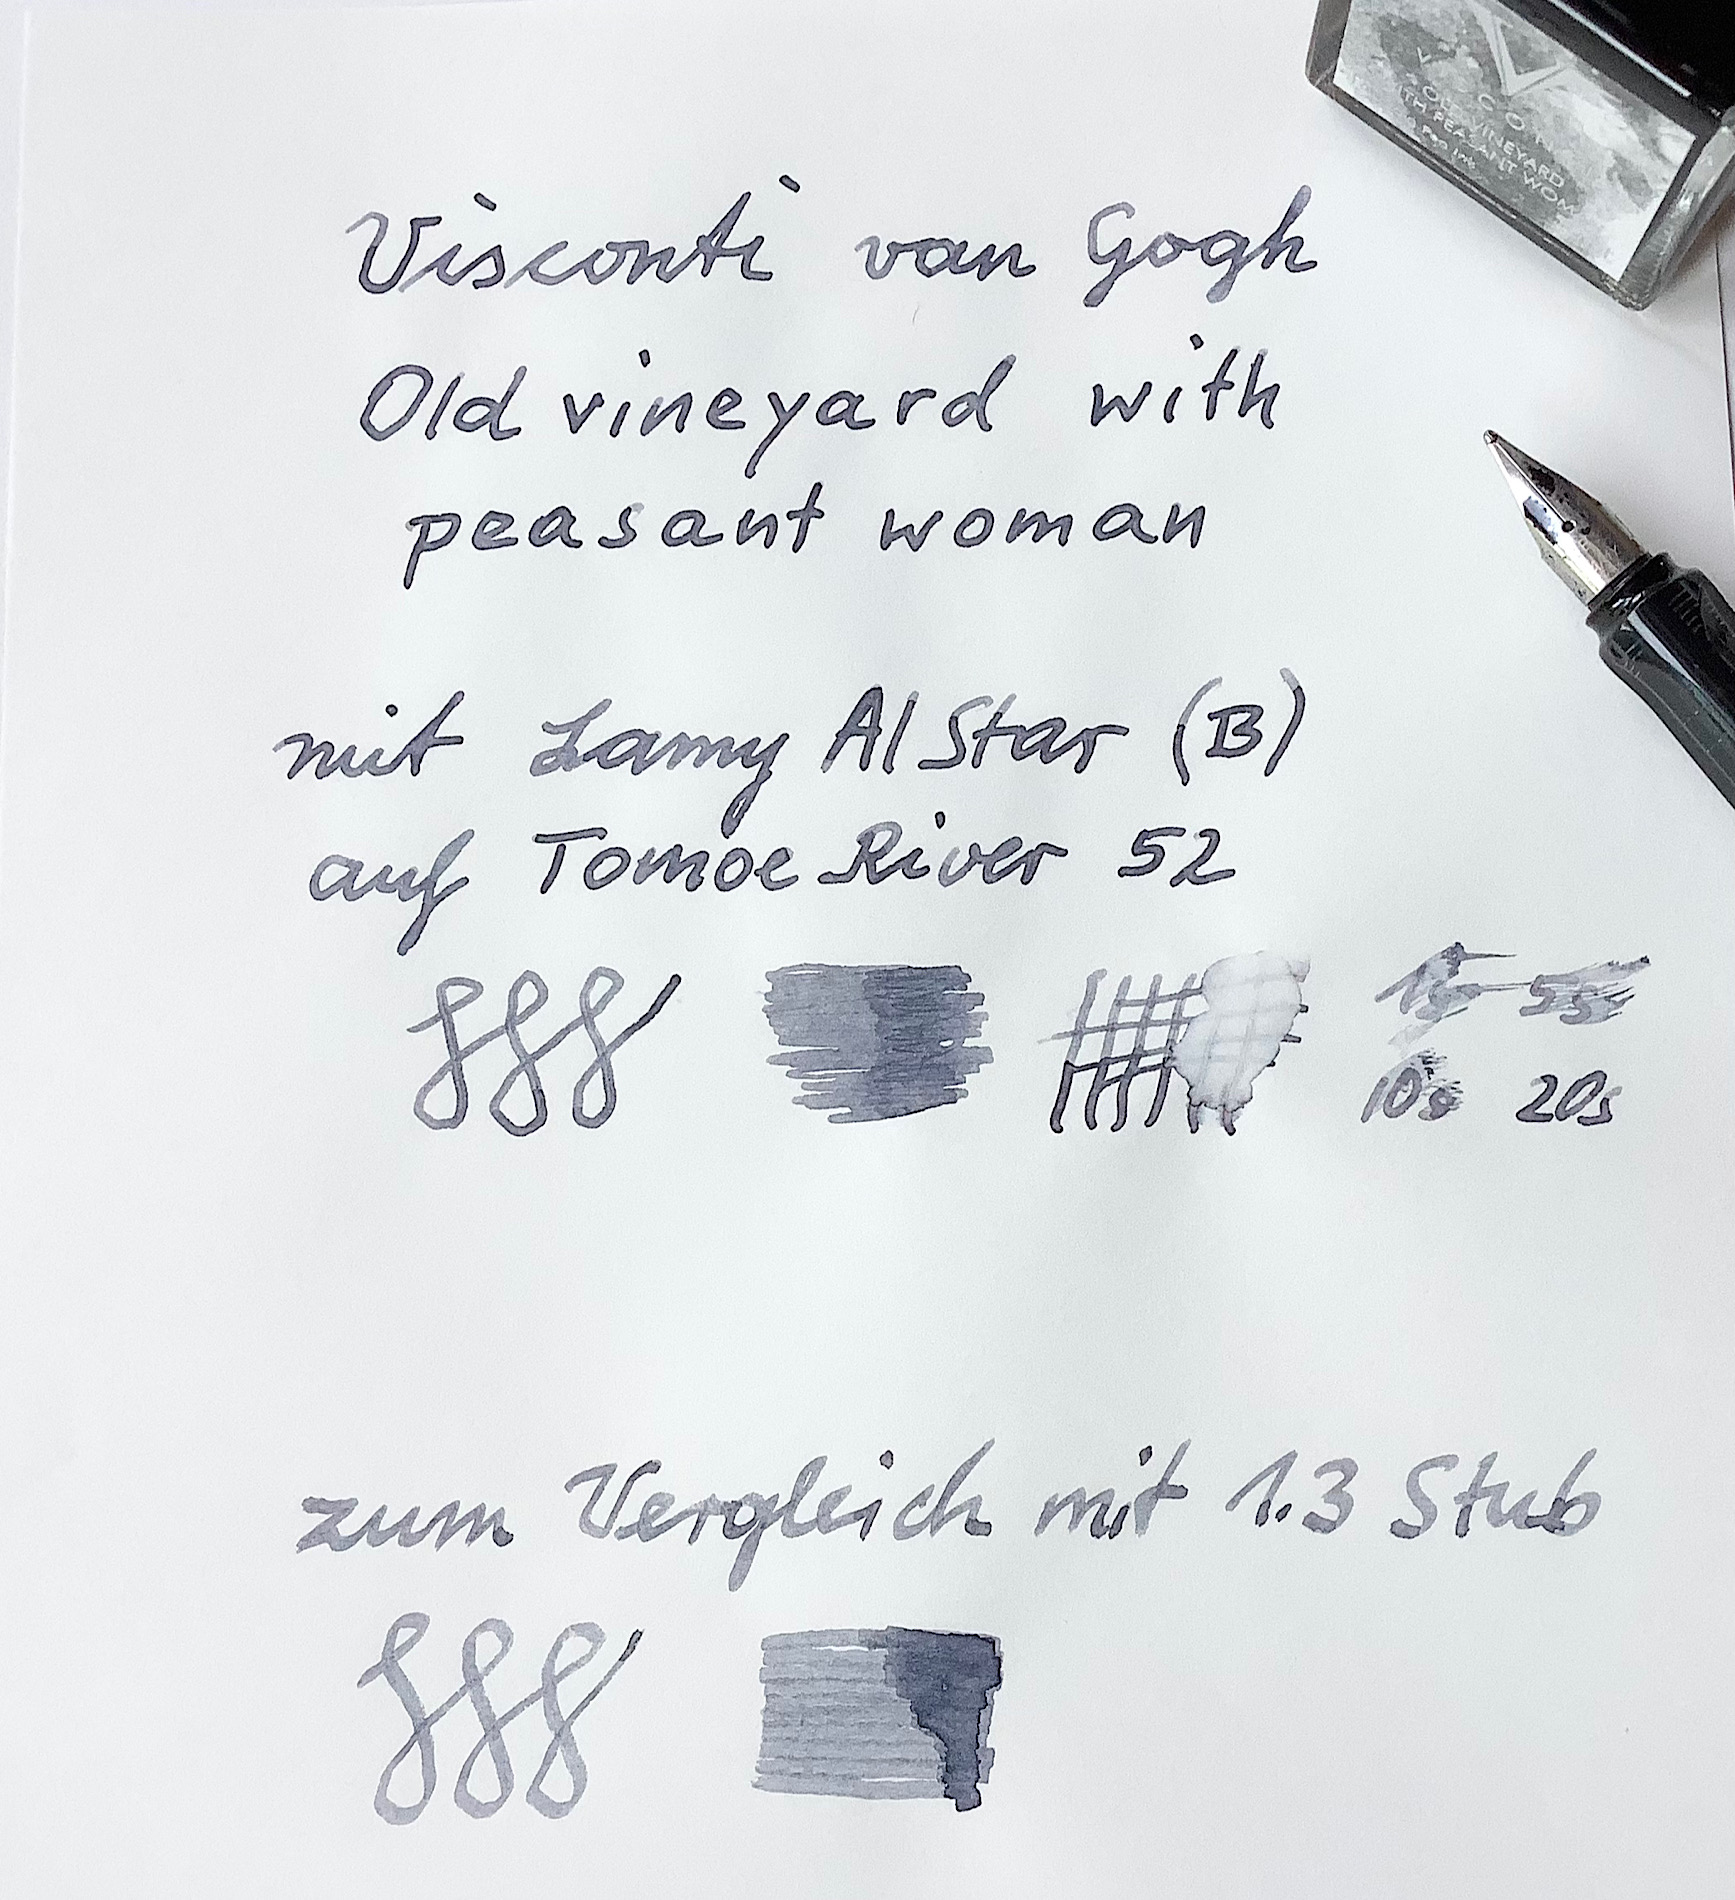 OLD VINEYARD
WITH PEASANT WOM
Pen Ink
Visconti van Gogh
Old vineyard with
peasant woman
mit Lamy Al Star (B)
auf Tomoe River 52
1s 5s
10s 20s
zum Vergleich mit 1.3 Stub